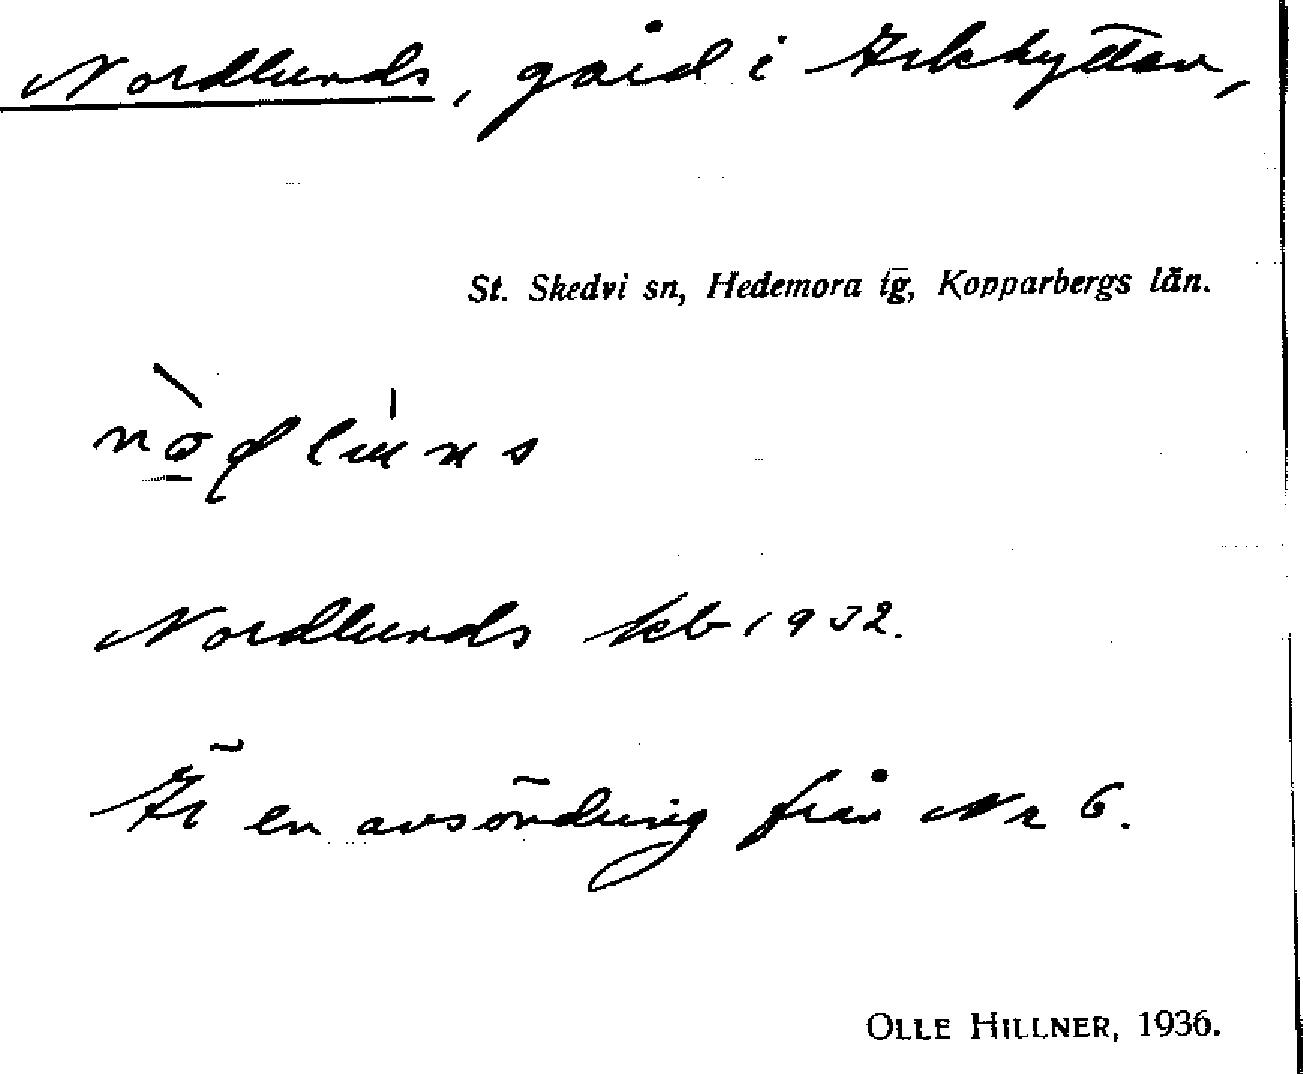 Nordlunds, gård i Arkhyttan,
St. Skedvi sn, Hedemora tg, Kopparbergs län.
Nordlunds kb 1932.
Är en avsöndring från Nr 6.
OLLE HILLNER, 1936.